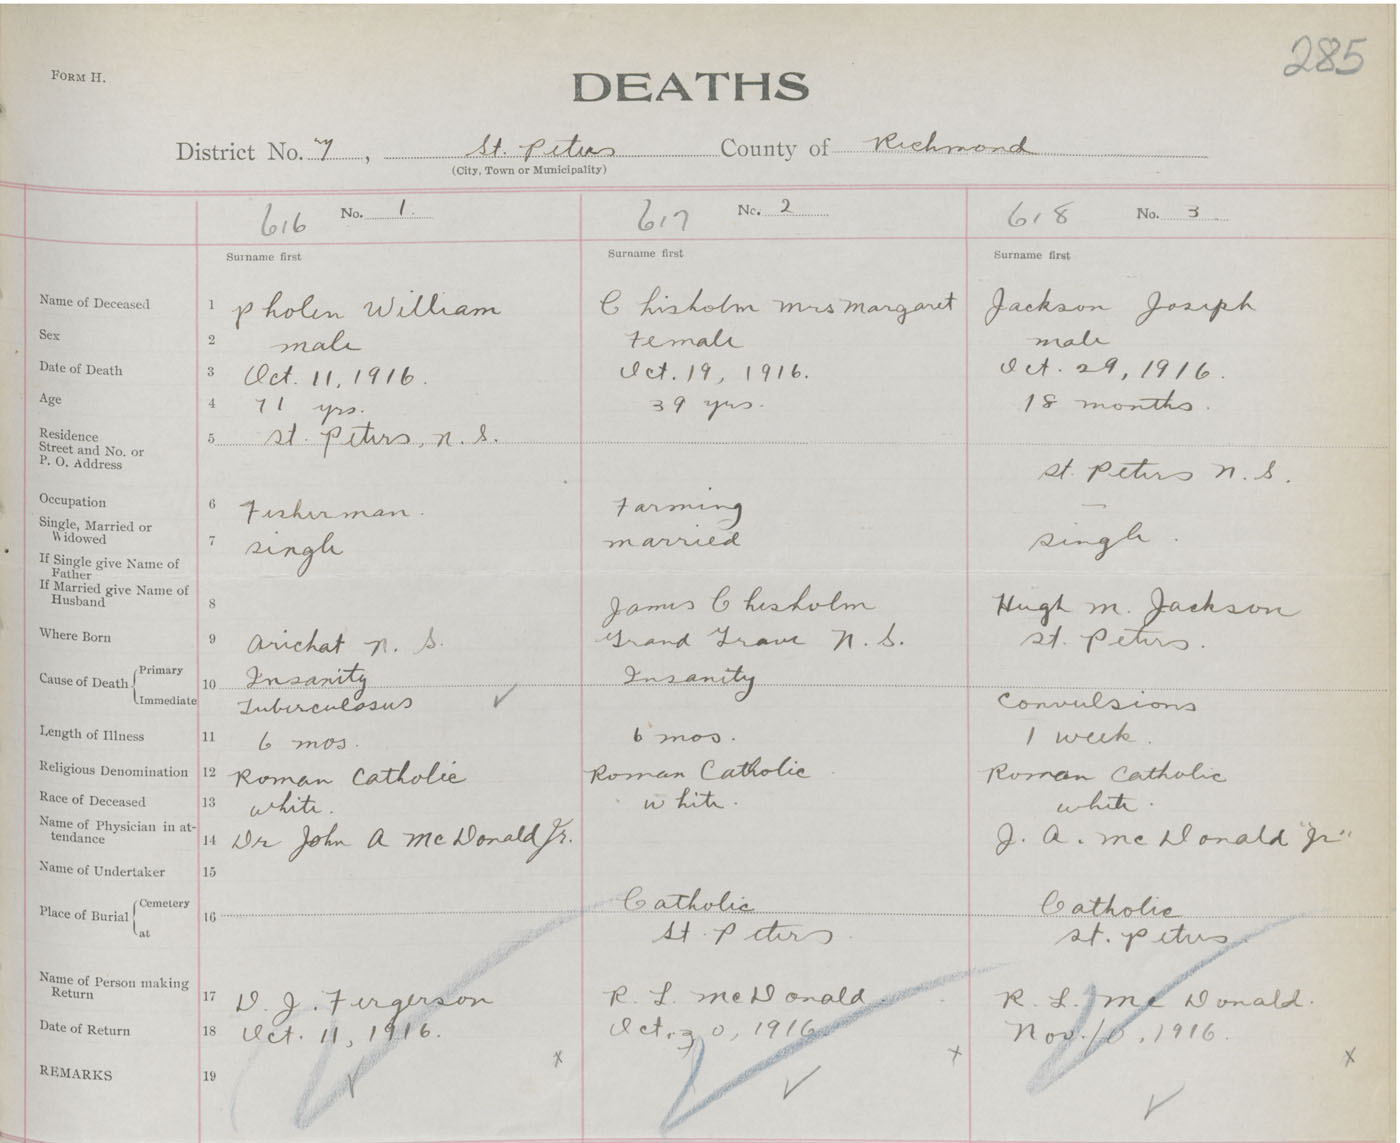 285
FORM H.
DEATHS
District No. 7, St. Peters County of Richmond
(City, Town or Municipality)
616 No. 1. 617 No. 2 618 No. 3
Surname first Surname first Surname first
Name of Deceased 1 Pholen William Chisholm Mrs Margaret Jackson Joseph
Sex 2 male Female male
Date of Death 3 Oct. 11, 1916. Oct. 19, 1916. Oct. 29, 1916.
Age 4 71 yrs. 39 yrs. 18 months.
Residence 5 St. Peters, N. S.
Street and No. or
P. O. Address St. Peters N. S.
Occupation 6 Fisherman. Farming —
Single, Married or
Widowed 7 single married single.
If Single give Name of
Father
If Married give Name of
Husband 8 James Chisholm Hugh M. Jackson
Where Born 9 Arichat N. S. Grand Grave N. S. St. Peters.
Cause of Death Primary 10 Insanity Insanity
Immediate Tuberculosus ✓ Convulsions
Length of Illness 11 6 mos. 6 mos. 1 week.
Religious Denomination 12 Roman Catholic Roman Catholic Roman Catholic
Race of Deceased 13 white. white. white.
Name of Physician in at-
tendance 14 Dr John A McDonald Jr. J. A. McDonald "Jr"
Name of Undertaker 15
Place of Burial Cemetery 16 Catholic Catholic
at St. Peters St. Peters
Name of Person making
Return 17 D. J. Fergerson R. L. McDonald R. L. McDonald.
Date of Return 18 Oct. 11, 1916. Oct. 30, 1916. Nov. 10, 1916.
x x x
REMARKS 19 ✓ ✓ ✓